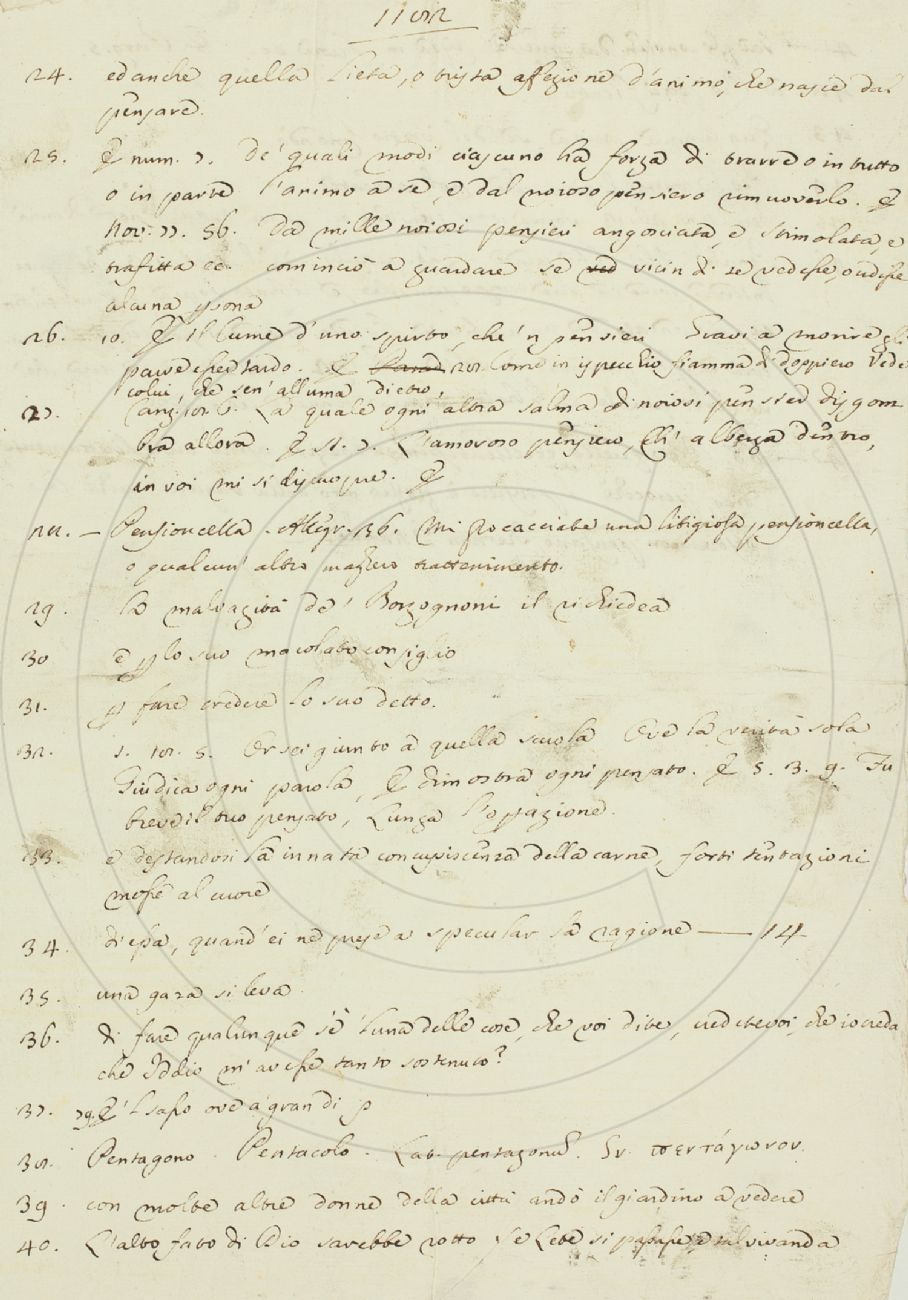 24. ed anche quella lieta, o trista affezione d'animo, che nasce dal
pensare.
25. E num. 7. De' quali modi ciascuno ha forza di trarre o in tutto
o in parte l'animo a se, e dal noioso pensiero rimuoverlo. E
Nov. 77. 56. Da mille noiosi pensieri angosciata, e stimolata, e
trafitta ec. cominciò a guardare se ved vicin di se vedesse, o udisse
alcuna psona
26. 10. E il lume d'uno spirto, che 'n pensieri Gravi a morire gli
parve esser tardo. E come in ispecchio fiamma di doppiero Vede
colui, che sen' alluma dietro,
27. La quale ogni altra salma di noiosi pensier disgom-
bra allora. E st. 7. L'amoroso pensiero, Ch' alberga dentro,
in voi mi si discuopre. E
28. — Pensioncella. Allegr. 136. Mi procacciate una litigiosa pensioncella,
o qualcun' altro magro trattenimento.
29. la malvagità de' Borgognoni il richiedea
30 e p lo suo macolato consiglio
31. p fare credere lo suo detto.
32. Or sei giunto a quella scuola Ove la verità sola
Giudica ogni parola, E dimostra ogni pensato. E 5. 3. 9. Fu
breve il tuo pensato, Lunga l'
33. e destandosi la innata concupiscenza della carne, forti tentazioni
mosse al cuore
34. di essa, quand' ei ne prese a specular la ragione — 14
35. una gara si leva
36. di fare qualunque s'è l'una delle cose, che voi dite, credete voi, che io creda
che Iddio m'avesse tanto sostenuto?
37. 79. E 'l sasso ove a' gran dì p
38. Pentagono. Pentacolo. Lat. pentagonũ. Gr. πεντάγωνον.
39. con molte altre donne della città andò il giardino a vedere
40. L'alto fato di Dio sarebbe rotto Se Lete si passasse, e tal vivanda